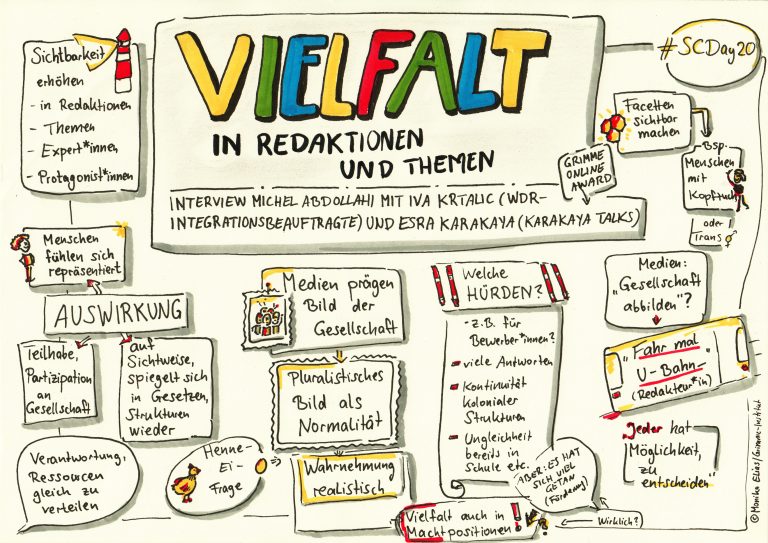 VIELFALT
IN REDAKTIONEN
UND THEMEN
INTERVIEW MICHEL ABDOLLAHI MIT IVA KRTALIC (WDR-
INTEGRATIONSBEAUFTRAGTE) UND ESRA KARAKAYA (KARAKAYA TALKS)
GRIMME
ONLINE
AWARD
#SCDay20
Sichtbarkeit
erhöhen
- in Redaktionen
- Themen
- Expert*innen
- Protagonist*innen
Menschen
fühlen sich
repräsentiert
AUSWIRKUNG
Teilhabe,
Partizipation
an
Gesellschaft
auf
Sichtweise,
spiegelt sich
in Gesetzen,
Strukturen
wieder
Verantwortung,
Ressourcen
gleich zu
verteilen
Medien prägen
Bild der
Gesellschaft
Pluralistisches
Bild als
Normalität
Henne-
Ei-
Frage
Wahrnehmung
realistisch
Welche
HÜRDEN?
- z.B. für
Bewerber*innen?
viele Antworten
Kontinuität
kolonialer
Strukturen
Ungleichheit
bereits in
Schule etc.
ABER: ES HAT
SICH VIEL
GETAN
(Förderung)
Wirklich?
Vielfalt auch in
Machtpositionen!
Facetten
sichtbar
machen
Bsp.
Menschen
mit
Kopftuch
oder
Trans
Medien:
„Gesellschaft
abbilden"?
„Fahr mal
U-Bahn"-
(Redakteur*in)
„Jeder hat
Möglichkeit,
zu
entscheiden"
© Monika Elias/Grimme-Institut